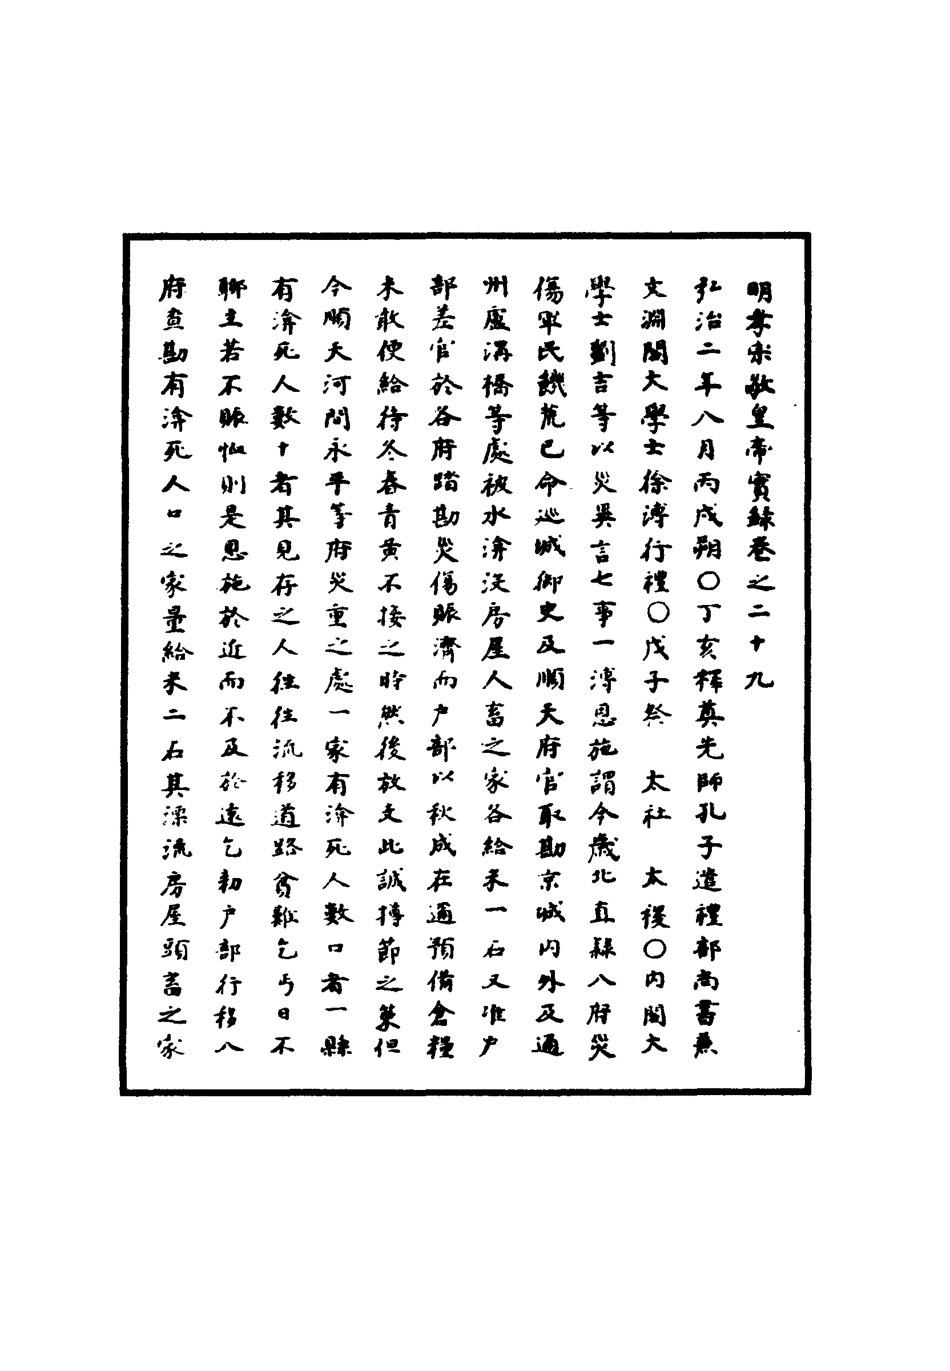 明孝宗敬皇帝實錄卷之二十九
弘治二年八月丙戌朔〇丁亥釋奠先師孔子遣禮部尚書兼
文淵閣大學士徐溥行禮〇戊子祭 太社 太稷〇內閣大
學士劉吉等以災異言七事一溥恩施謂今歲北直隸八府災
傷軍民饑荒已命巡城御史及順天府官取勘京城內外及通
州盧溝橋等處被水渰沒房屋人畜之家各給米一石又准户
部差官於各府踏勘災傷賑濟而户部以秋成在邇預備倉糧
未敢便給待冬春青黃不接之時然後放支此誠撙節之策但
今順天河間永平等府災重之處一家有渰死人數口者一縣
有渰死人數十者其見存之人往往流移道路貧難乞丐日不
聊生若不賑恤則是恩施於近而不及於遠乞勑户部行移八
府查勘有渰死人口之家量給米二石其漂流房屋頭畜之家